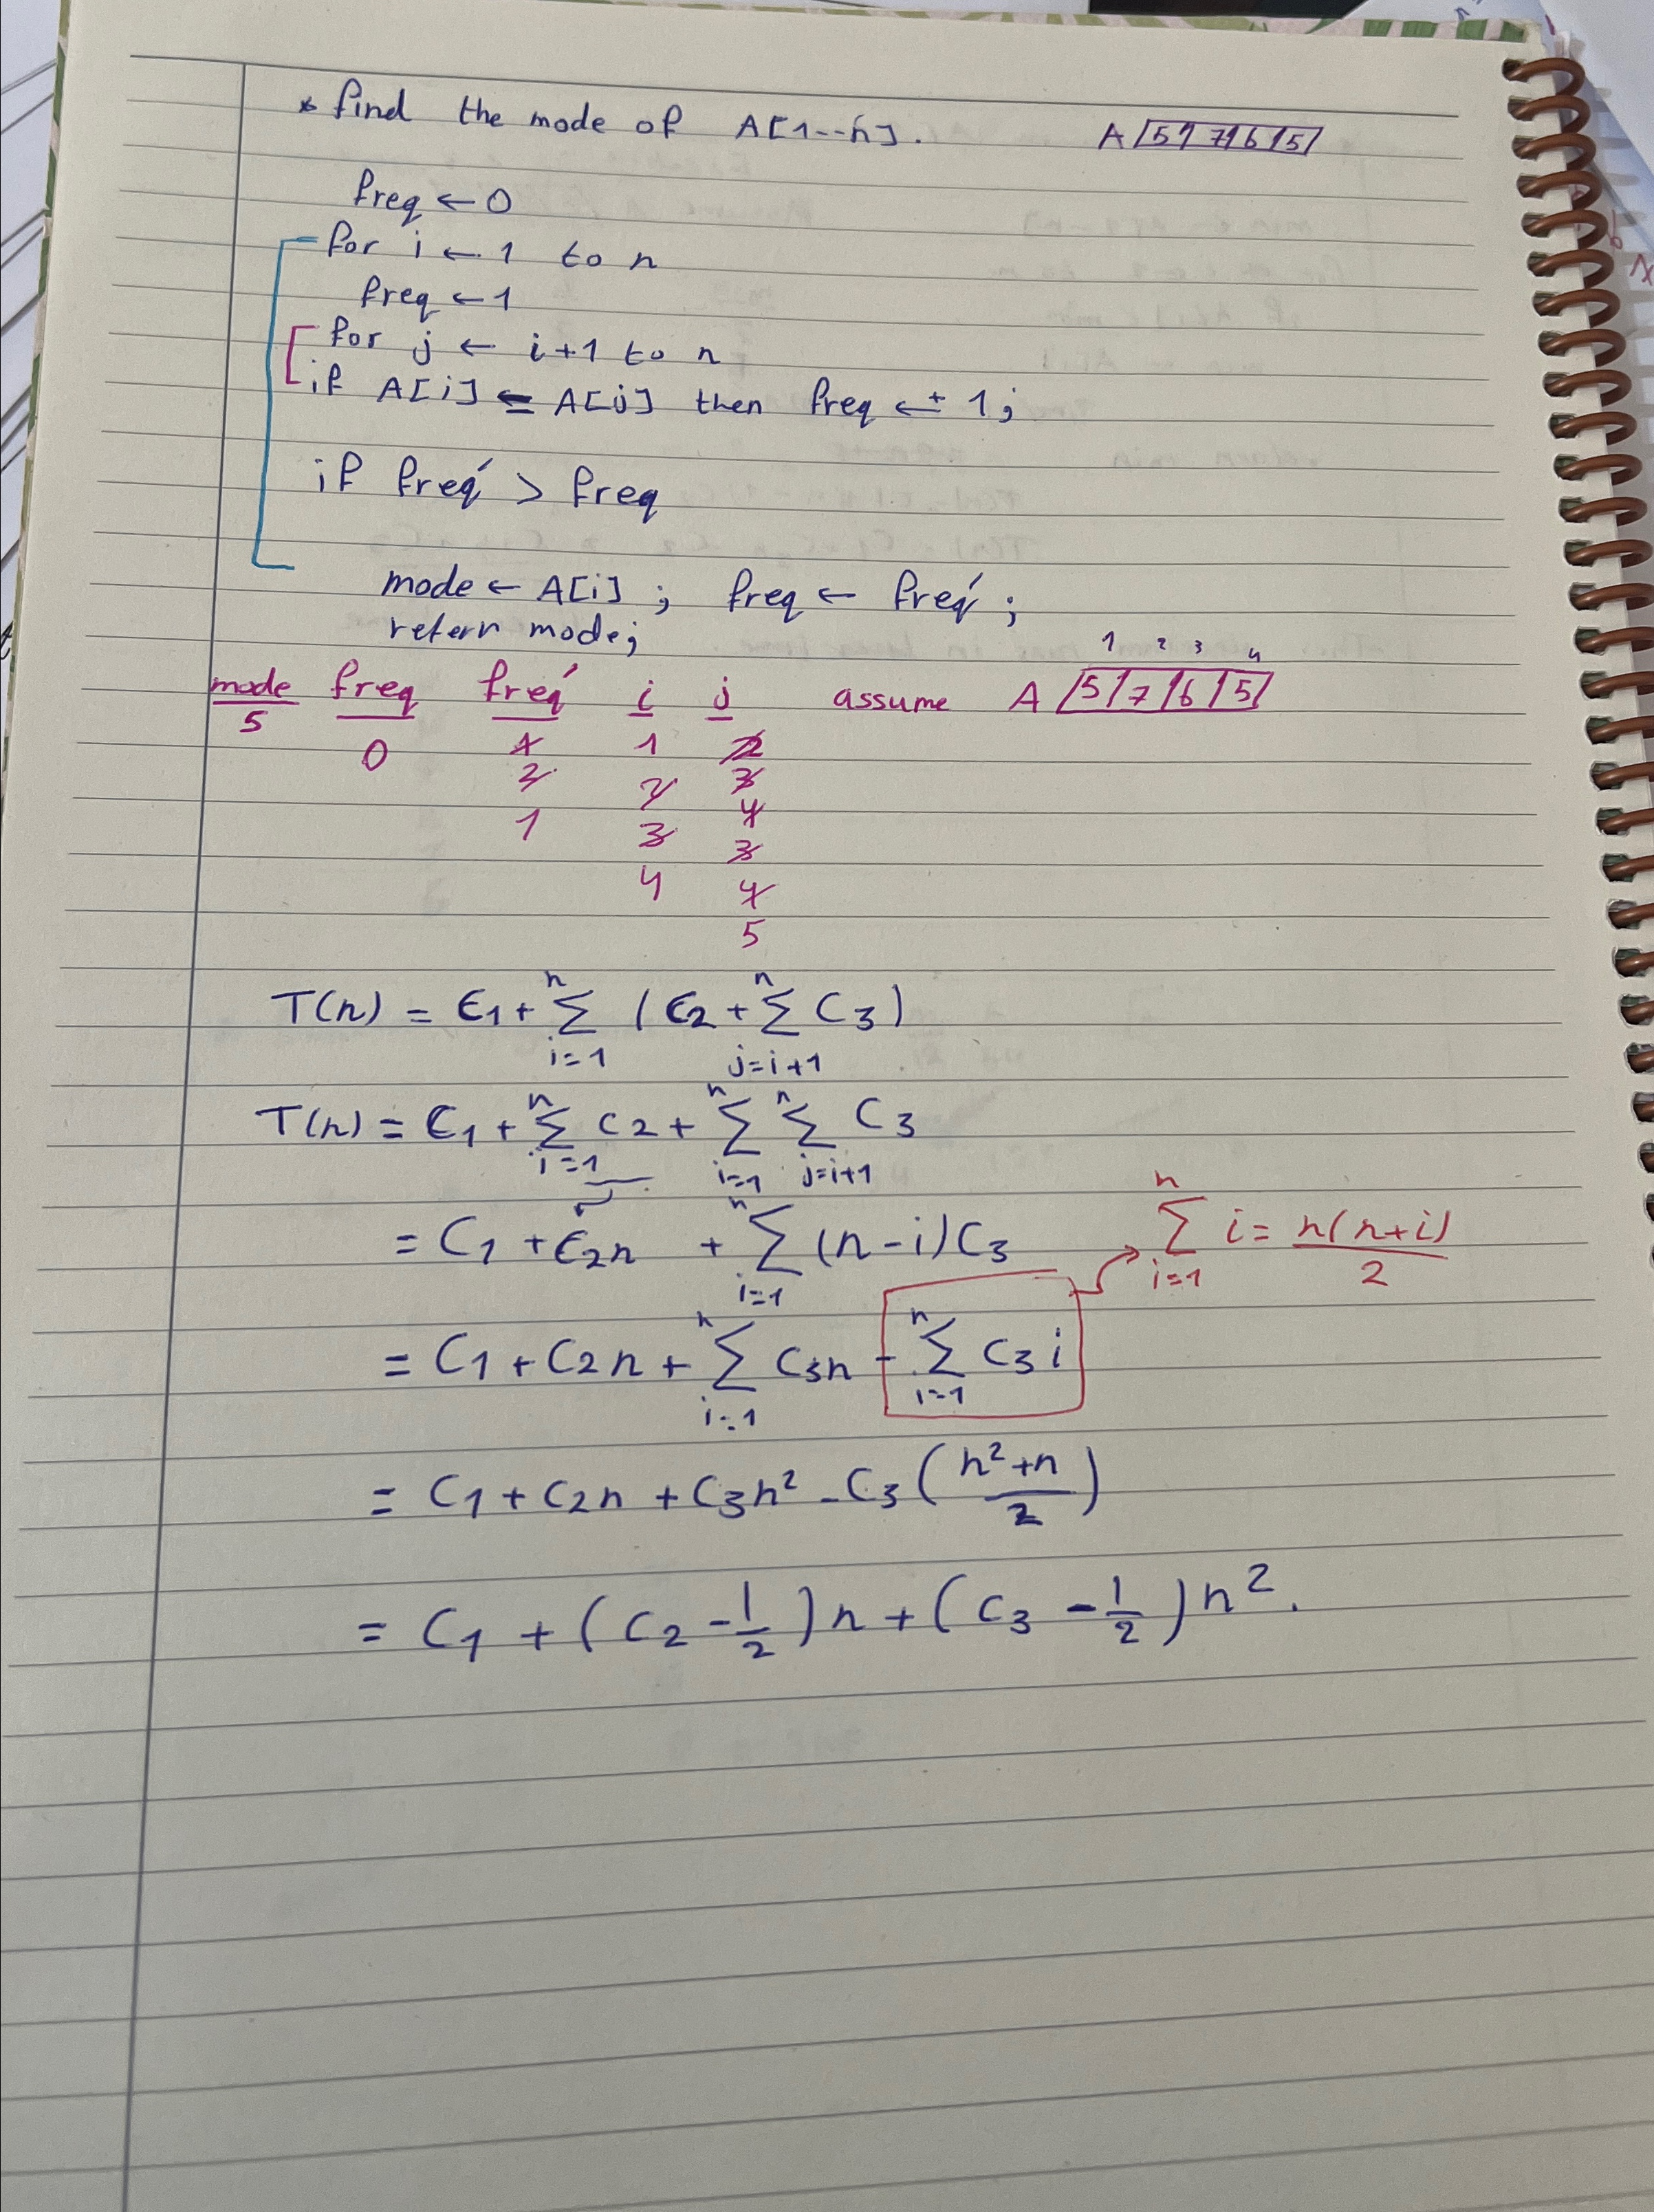 * find the mode of A[1--n]. A [5|7|6|5]
freq ← 0
for i ← 1 to n
freq ← 1
for j ← i+1 to n
if A[i] = A[j] then freq ←+ 1;
if freq′ > freq
mode ← A[i] ; freq ← freq′ ;
retern mode;
1 2 3 4
mode freq freq′ i j assume A [5|7|6|5]
5
0 1 1 2
2 2 3
1 3 4
3
4 4
5
T(n) = C1 + n∑i=1 (C2 + n∑j=i+1 C3)
T(n) = C1 + n∑i=1 C2 + n∑i=1 n∑j=i+1 C3
= C1 + C2n + n∑i=1 (n-i)C3 n∑i=1 i = n(n+i)/2
= C1 + C2n + n∑i=1 C3n - n∑i=1 C3 i
= C1 + C2n + C3n² - C3 (n²+n / 2)
= C1 + (C2 - 1/2)n + (C3 - 1/2)n².